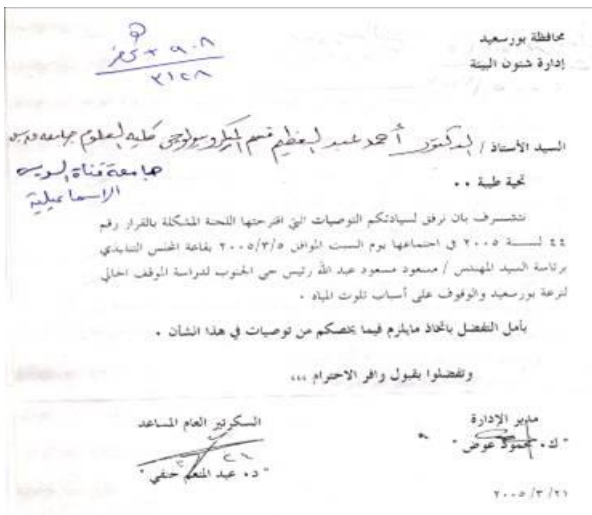 محافظة بورسعيد
إدارة شئون البيئة
٩٠٨
٣١٢٨
السيد الأستاذ / الدكتور أحمد عبد العظيم قسم الميكروبيولوجى كلية العلوم جامعة
جامعة قناة السويس
الاسماعيلية
تحية طيبة ٠٠
نتشرف بان نرفق لسيادتكم التوصيات التى اقترحتها اللجنة المشكلة بالقرار رقم
٤٤ لسنة ٢٠٠٥ فى اجتماعها يوم السبت الموافق ٢٠٠٥/٣/٥ بقاعة المجلس التنفيذى
برئاسة السيد المهندس / مسعود مسعود عبد الله رئيس حى الجنوب لدراسة الموقف الحالى
لترعة بورسعيد والوقوف على أسباب تلوث المياه ٠
يأمل التفضل باتخاذ مايلزم فيما يخصكم من توصيات فى هذا الشأن ٠
وتفضلوا بقبول وافر الاحترام ،،،
مدير الإدارة
" ك٠ محمود عوض "
السكرتير العام المساعد
" د٠ عبد المنعم حنفى "
٢٠٠٥/٣/٢١